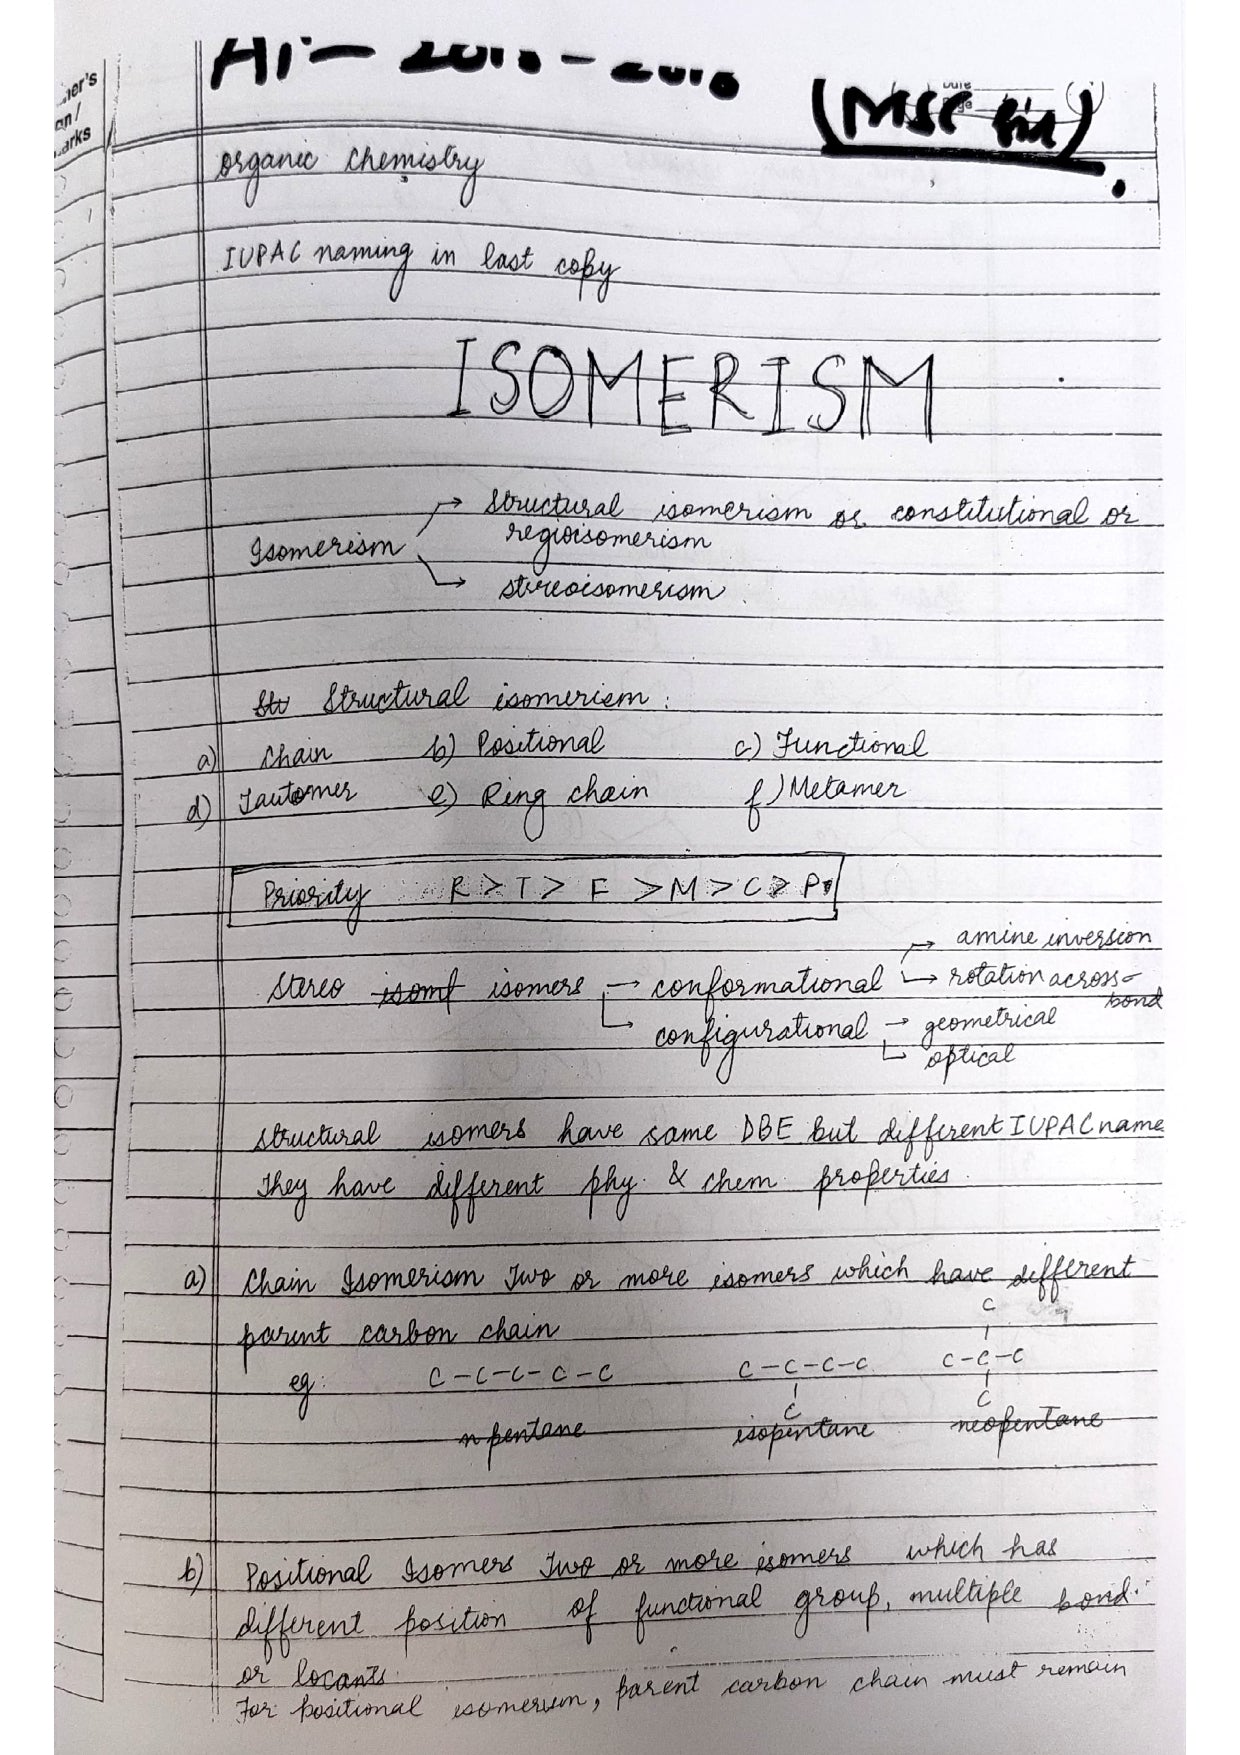 (MSC
organic chemistry
IUPAC naming in last copy
ISOMERISM
Isomerism → structural isomerism or constitutional or
regioisomerism
→ stereoisomerism
Structural isomerism :
a) Chain b) Positional c) Functional
d) Tautomer e) Ring chain f) Metamer
Priority R > T > F > M > C > P
→ amine inversion
Stereo isomers → conformational → rotation across
bond
→ configurational → geometrical
→ optical
structural isomers have same DBE but different IUPAC name
They have different phy. & chem properties.
a) Chain Isomerism Two or more isomers which have different
parent carbon chain
eg: C-C-C-C-C C-C-C-C C-C-C
C C C
n pentane isopentane neopentane
b) Positional Isomers Two or more isomers which has
different position of functional group, multiple bond
or locants.
For positional isomerism, parent carbon chain must remain